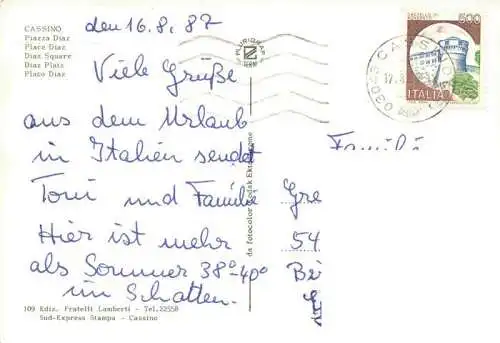 CASSINO
Piazza Diaz
Place Diaz
Diaz Square
Diaz Platz
Plazo Diaz
den 16.8.87
Viele Grüße
aus dem Urlaub
in Italien sendet
Toni und Familie
Hier ist mehr
als Sommer 38°-40°
im Schatten.
109 Ediz. Fratelli Lamberti - Tel. 22558
Sud-Express Stampa - Cassino
PLURIGRAF
TERNI
da fotocolor Kodak Ektachrome
500
ITALIA
03043 CASSINO
Familie
Gre
54
Bei